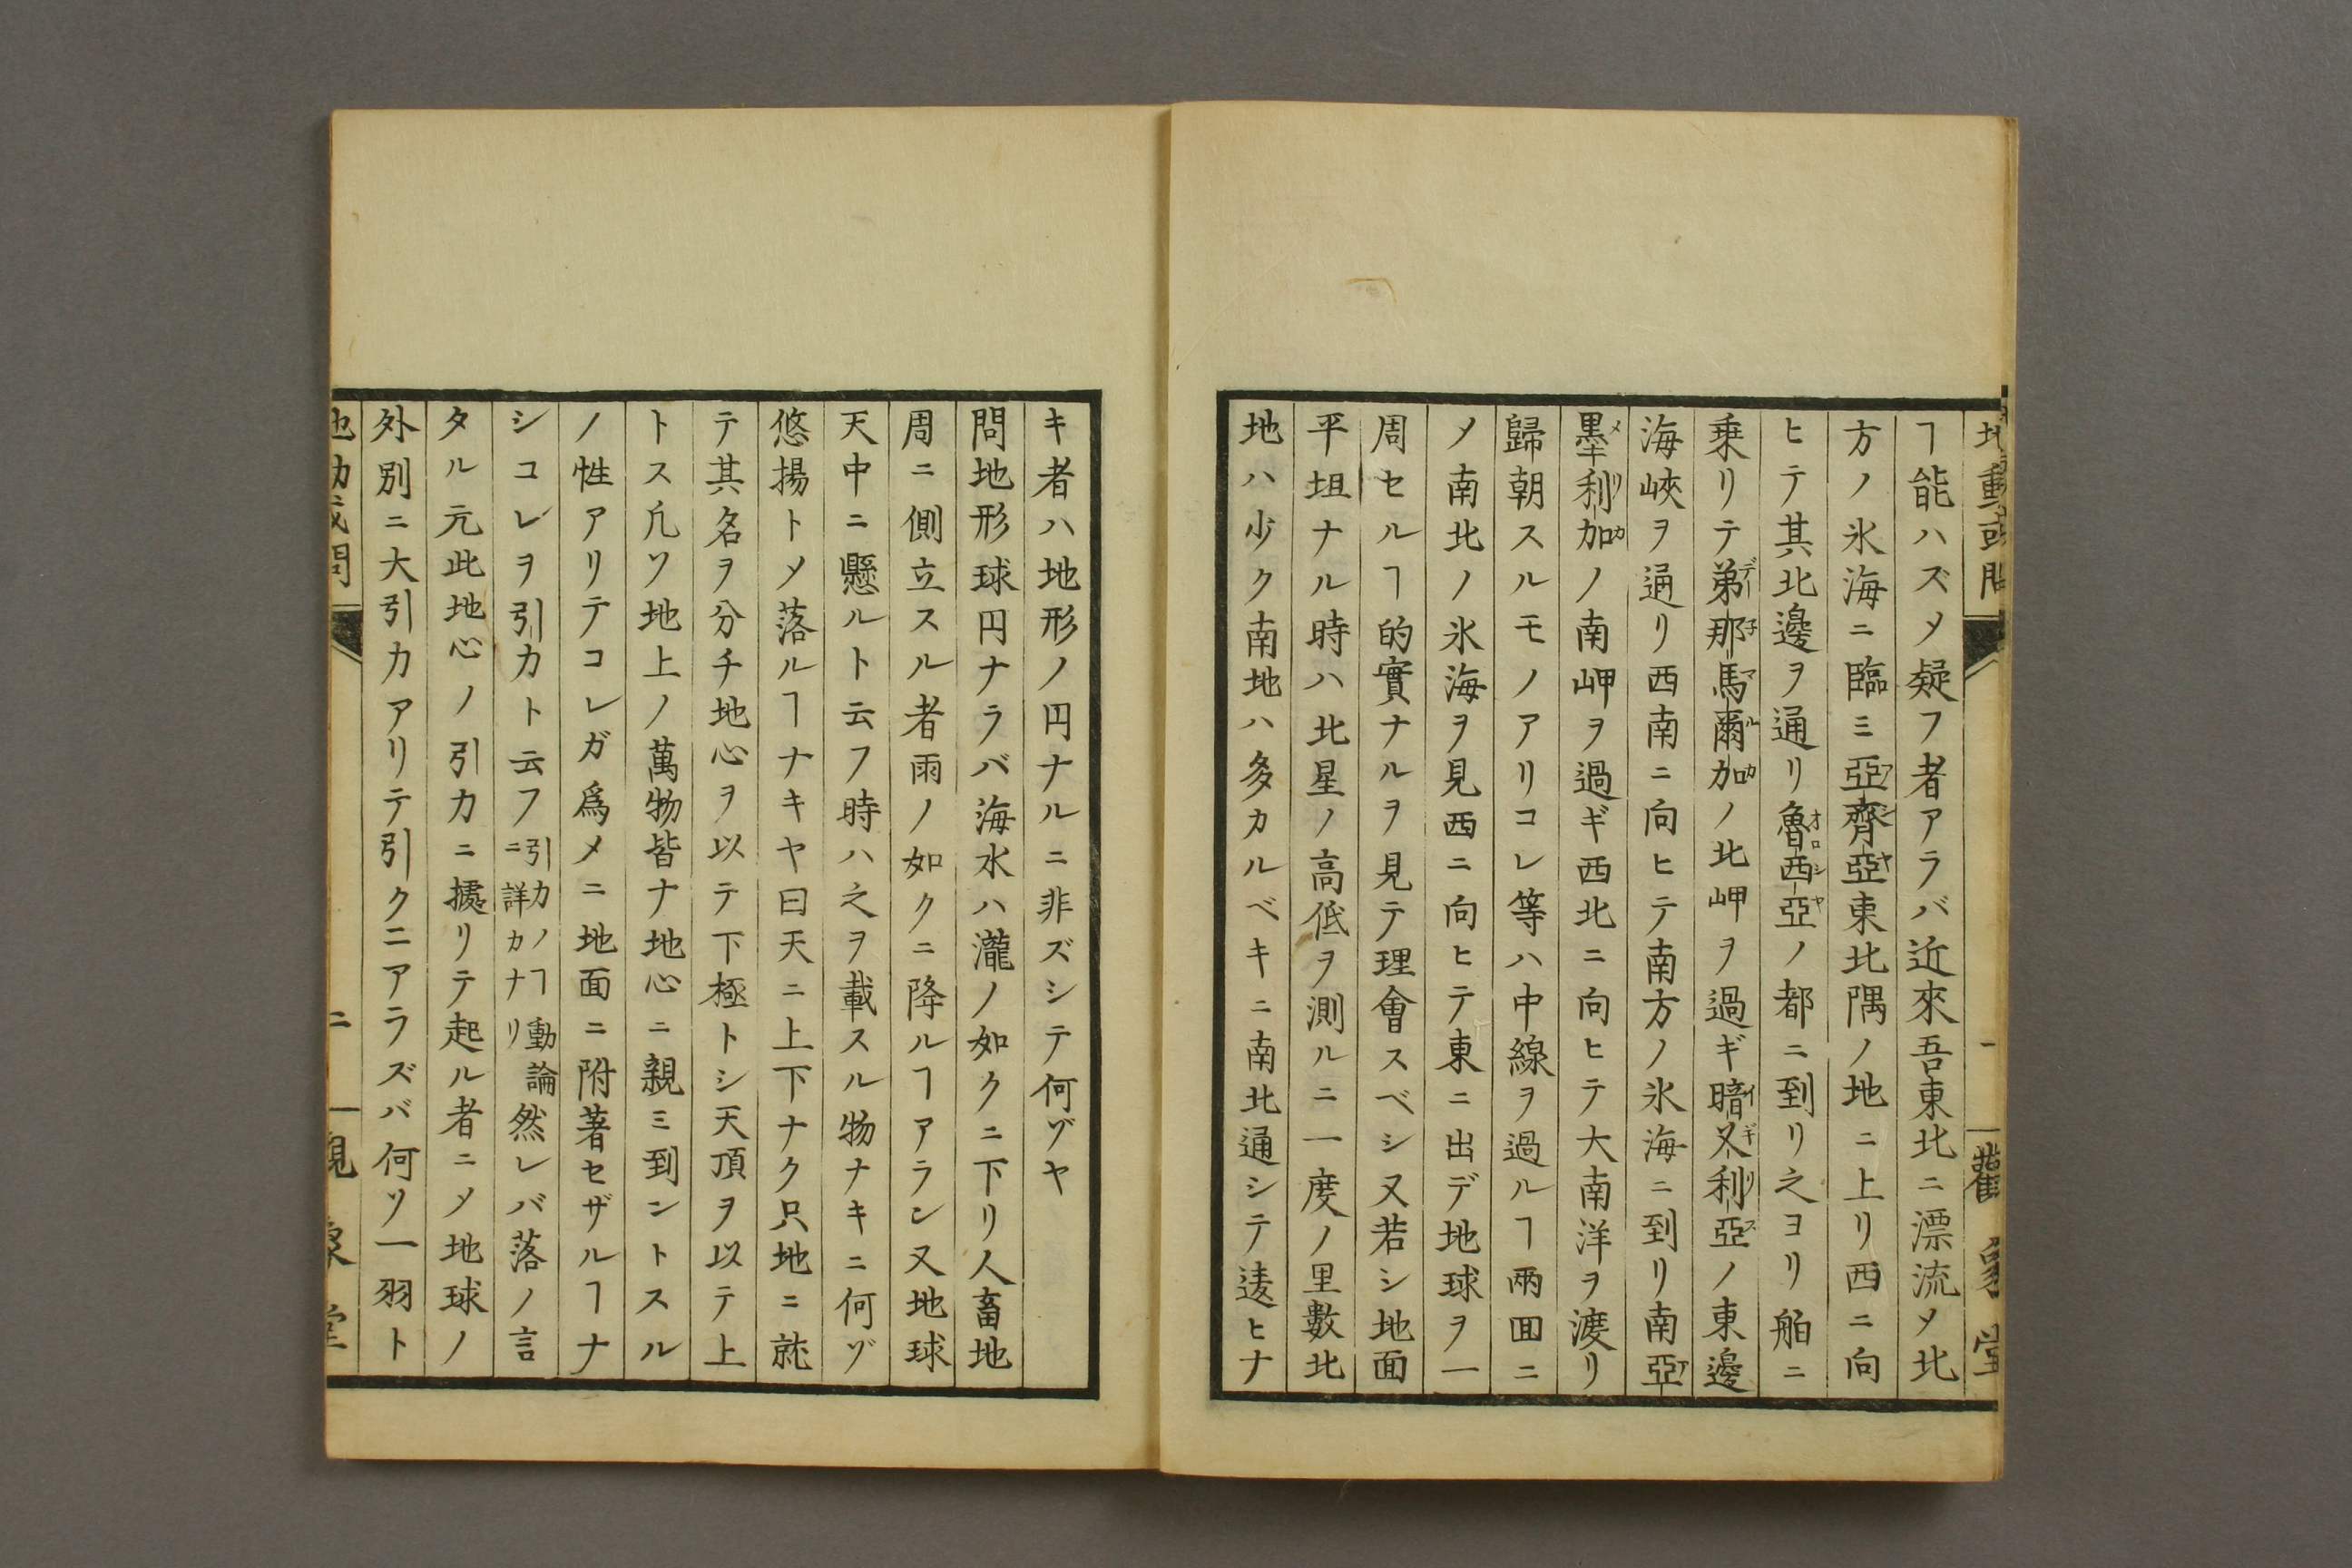 地動或問
一
觀象堂
ヿ能ハズメ疑フ者アラバ近來吾東北ニ漂流メ北
方ノ氷海ニ臨ミ亞齊亞東北隅ノ地ニ上リ西ニ向
ヒテ其北邊ヲ通リ魯西亞ノ都ニ到リ之ヨリ舶ニ
乗リテ弟那馬爾加ノ北岬ヲ過ギ暗又利亞ノ東邊
海峽ヲ通リ西南ニ向ヒテ南方ノ氷海ニ到リ南亞
墨利加ノ南岬ヲ過ギ西北ニ向ヒテ大南洋ヲ渡リ
歸朝スルモノアリコレ等ハ中線ヲ過ルヿ兩囬ニ
メ南北ノ氷海ヲ見西ニ向ヒテ東ニ出デ地球ヲ一
周セルヿ的實ナルヲ見テ理會スベシ又若シ地面
平坦ナル時ハ北星ノ高低ヲ測ルニ一度ノ里數北
地ハ少ク南地ハ多カルベキニ南北通シテ逺ヒナ
キ者ハ地形ノ円ナルニ非ズシテ何ヅヤ
問地形球円ナラバ海水ハ瀧ノ如クニ下リ人畜地
周ニ側立スル者雨ノ如クニ降ルヿアラン又地球
天中ニ懸ルト云フ時ハ之ヲ載スル物ナキニ何ヅ
悠揚トメ落ルヿナキヤ曰天ニ上下ナク只地ニ就
テ其名ヲ分チ地心ヲ以テ下極トシ天頂ヲ以テ上
トス凡ソ地上ノ萬物皆ナ地心ニ親ミ到ントスル
ノ性アリテコレガ爲メニ地面ニ附著セザルヿナ
シコレヲ引力ト云フ引力ノヿ動論ニ詳カナリ然レバ落ノ言
タル元此地心ノ引力ニ據リテ起ル者ニメ地球ノ
外別ニ大引力アリテ引クニアラズバ何ソ一羽ト
地動或問
二
觀象堂